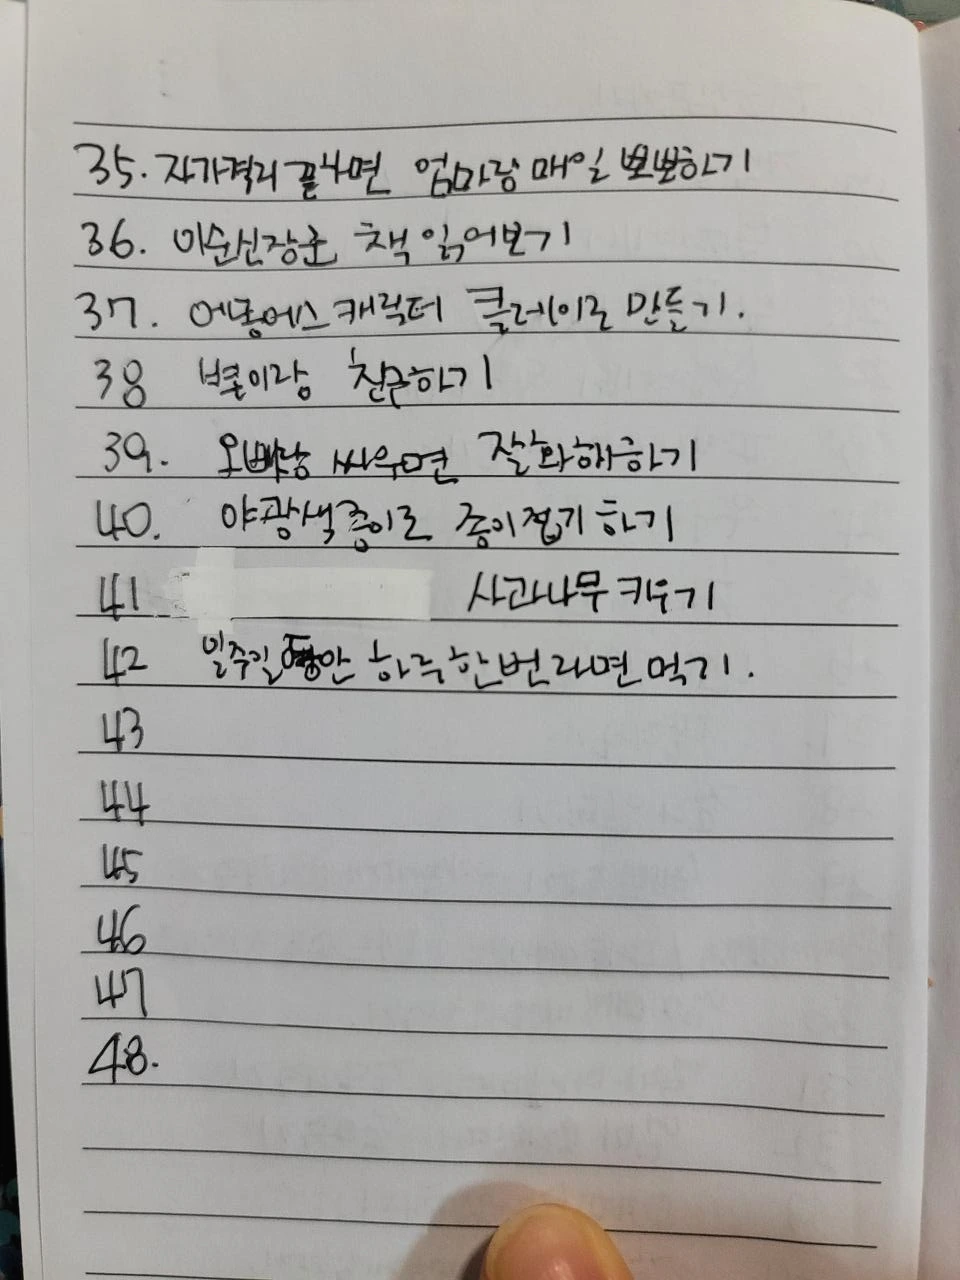 35. 자가격리 끝나면 엄마랑 매일 뽀뽀하기
36. 이순신장군 책 읽어보기
37. 어몽어스 캐릭터 클레이로 만들기.
38 별이랑 친구하기
39. 오빠랑 싸우면 잘 화해하기
40. 야광색종이로 종이접기 하기
41 사과나무 키우기
42 일주일 동안 하루 한번 라면 먹기.
43
44
45
46
47
48.